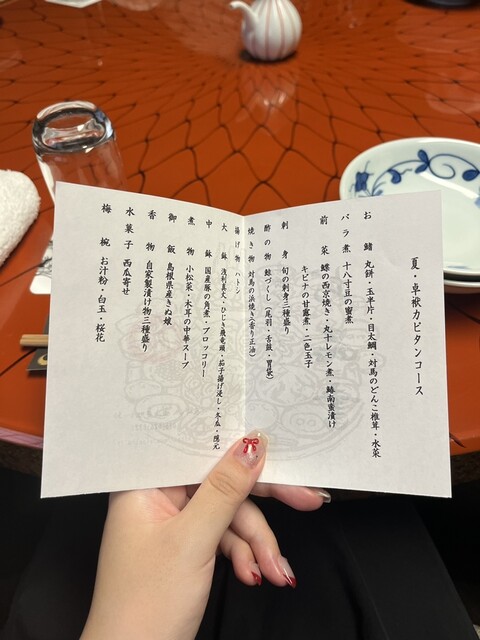 夏・卓袱カピタンコース
お鰭 丸餅・玉半片・目太鯛・対馬のどんこ椎茸・水菜
バラ煮 十八寸豆の蜜煮
前菜 鱧の西京焼き・丸十レモン煮・鰆南蛮漬け
キビナの甘露煮・二色玉子
刺身 旬の刺身三種盛り
酢の物 鯨づくし(尾羽・舌鼓・胃袋)
焼き物 対馬の浜焼き(香り正油)
揚げ物 ハトシ
大鉢 浅利真丈・ひじき飛竜頭・茄子揚げ浸し・冬瓜・隠元
中鉢 国産豚の角煮・ブロッコリー
煮物 小松菜・木耳の中華スープ
御飯 島根県産きぬ娘
香物 自家製漬け物三種盛り
水菓子 西瓜寄せ
梅椀 お汁粉・白玉・桜花